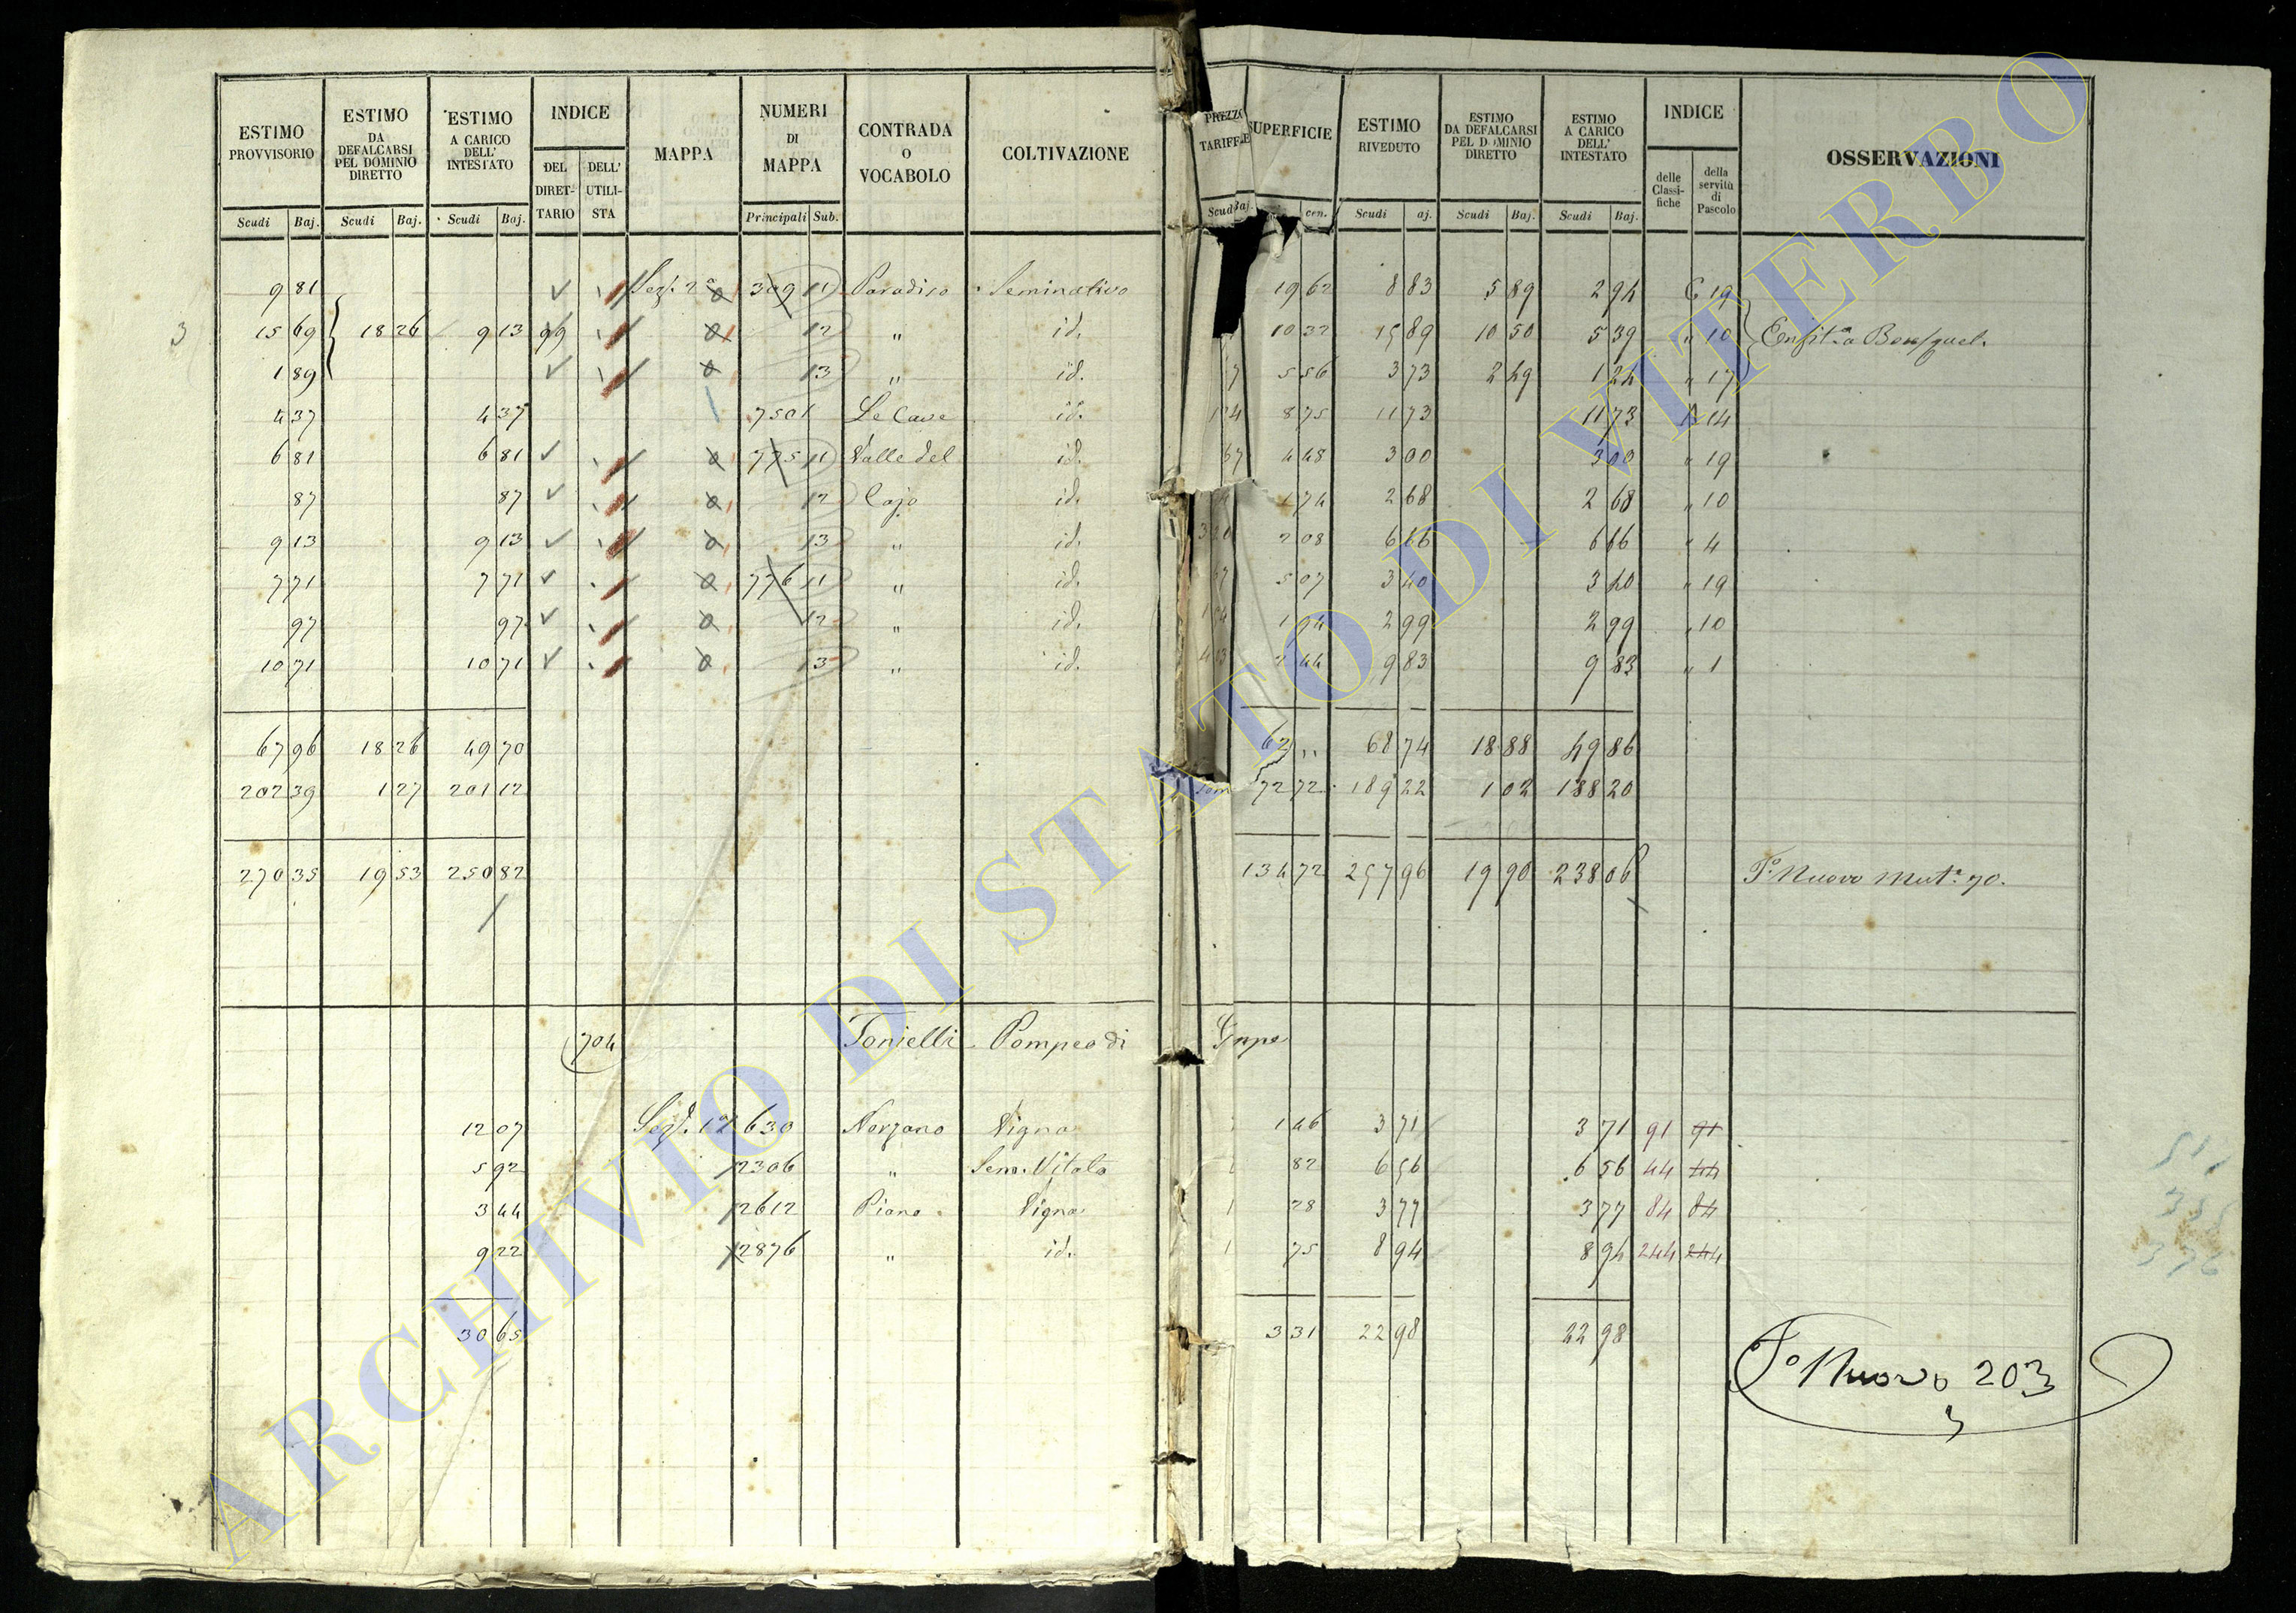 ESTIMO PROVVISORIO | ESTIMO DA DEFALCARSI PEL DOMINIO DIRETTO | ESTIMO A CARICO DELL' INTESTATO | INDICE | MAPPA | NUMERI DI MAPPA | CONTRADA O VOCABOLO | COLTIVAZIONE | PREZZO TARIFFE | SUPERFICIE | ESTIMO RIVEDUTO | ESTIMO DA DEFALCARSI PEL DOMINIO DIRETTO | ESTIMO A CARICO DELL' INTESTATO | INDICE | OSSERVAZIONI
DEL DIRETTARIO | DELL' UTILISTA | delle Classifiche | della servitù di Pascolo
Scudi | Baj. | Scudi | Baj. | Scudi | Baj. | Principali | Sub. | Scudi | Baj. | cen. | Scudi | aj. | Scudi | Baj. | Scudi | Baj.
9 81 | 309 11 | Paradiso | Seminativo | 19 62 | 8 83 | 5 89 | 2 94 | 19
3 | 15 69 | 18 26 | 9 13 | 99 | 12 | " | id. | 10 32 | 15 89 | 10 50 | 5 39 | " 10
1 89 | 13 | " | id. | 7 | 5 56 | 3 73 | 2 49 | 1 24 | " 17
4 37 | 4 37 | 750 1 | Le Cave | id. | 8 75 | 11 73 | 11 73 | 14
6 81 | 6 81 | 775 11 | Valle del | id. | 67 | 4 48 | 3 00 | 3 00 | " 19
87 | 87 | 12 | Cajo | id. | 1 74 | 2 68 | 2 68 | " 10
9 13 | 9 13 | 13 | " | id. | 3 20 | 2 08 | 6 66 | 6 66 | " 4
7 71 | 7 71 | 776 11 | " | id. | 67 | 5 07 | 3 40 | 3 40 | " 19
97 | 97 | 12 | " | id. | 1 54 | 1 94 | 2 99 | 2 99 | " 10
10 71 | 10 71 | 13 | " | id. | 2 44 | 9 83 | 9 83 | " 1
67 96 | 18 26 | 49 70 | 62 " | 68 74 | 18 88 | 49 86
202 39 | 1 27 | 201 12 | 72 72 | 189 22 | 1 02 | 188 20
270 35 | 19 53 | 250 82 | 134 72 | 257 96 | 19 90 | 238 06 | F.o Nuovo Mut.a 70.
704 | Tonielli Pompeo di
12 07 | Sez. 1a 630 | Nerzano | Vigna | 1 46 | 3 71 | 3 71 | 91 | 91
5 92 | 2306 | " | Sem. Vitato | 82 | 6 56 | 6 56 | 44 | 44
3 44 | 2612 | Piano | Vigna | 28 | 3 77 | 3 77 | 84 | 84
9 22 | 2876 | " | id. | 75 | 8 94 | 8 94 | 244 | 244
30 65 | 3 31 | 22 98 | 22 98
F.o Nuovo 203
ARCHIVIO DI STATO DI VITERBO